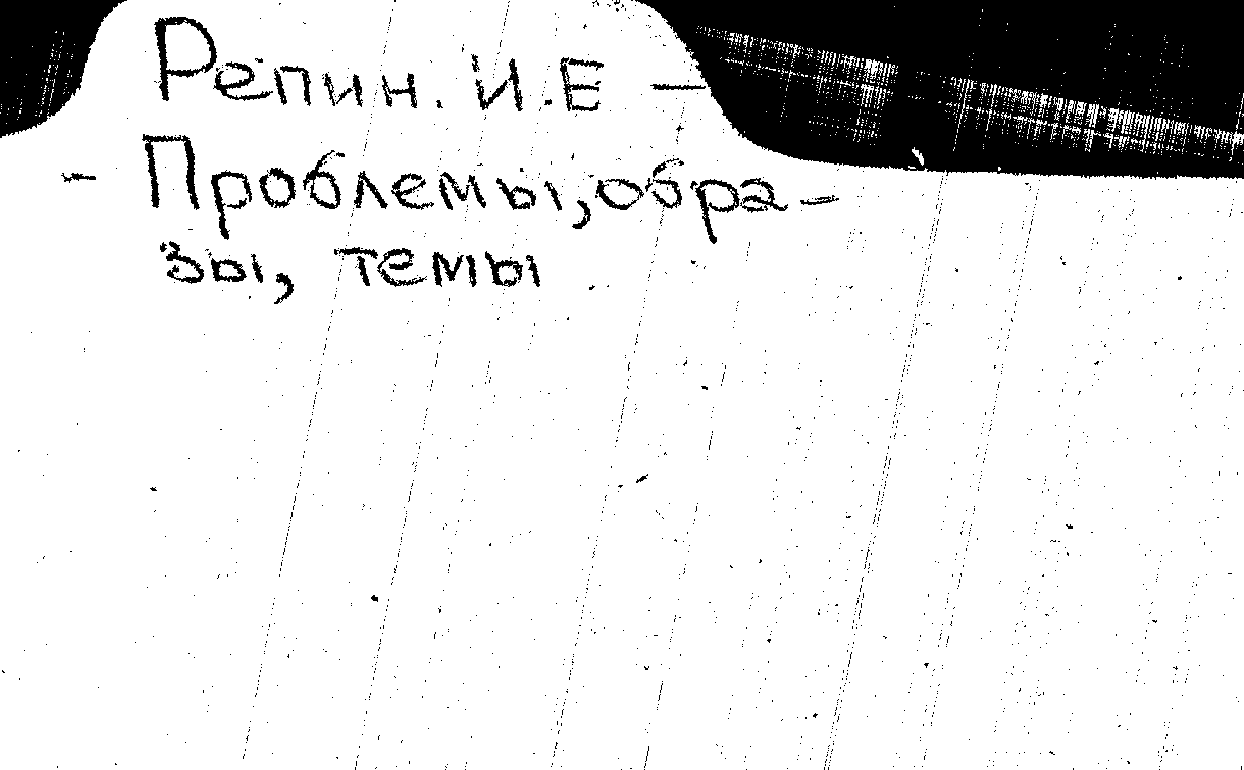 Репин. И.Е —
- Проблемы, обра-
зы, темы